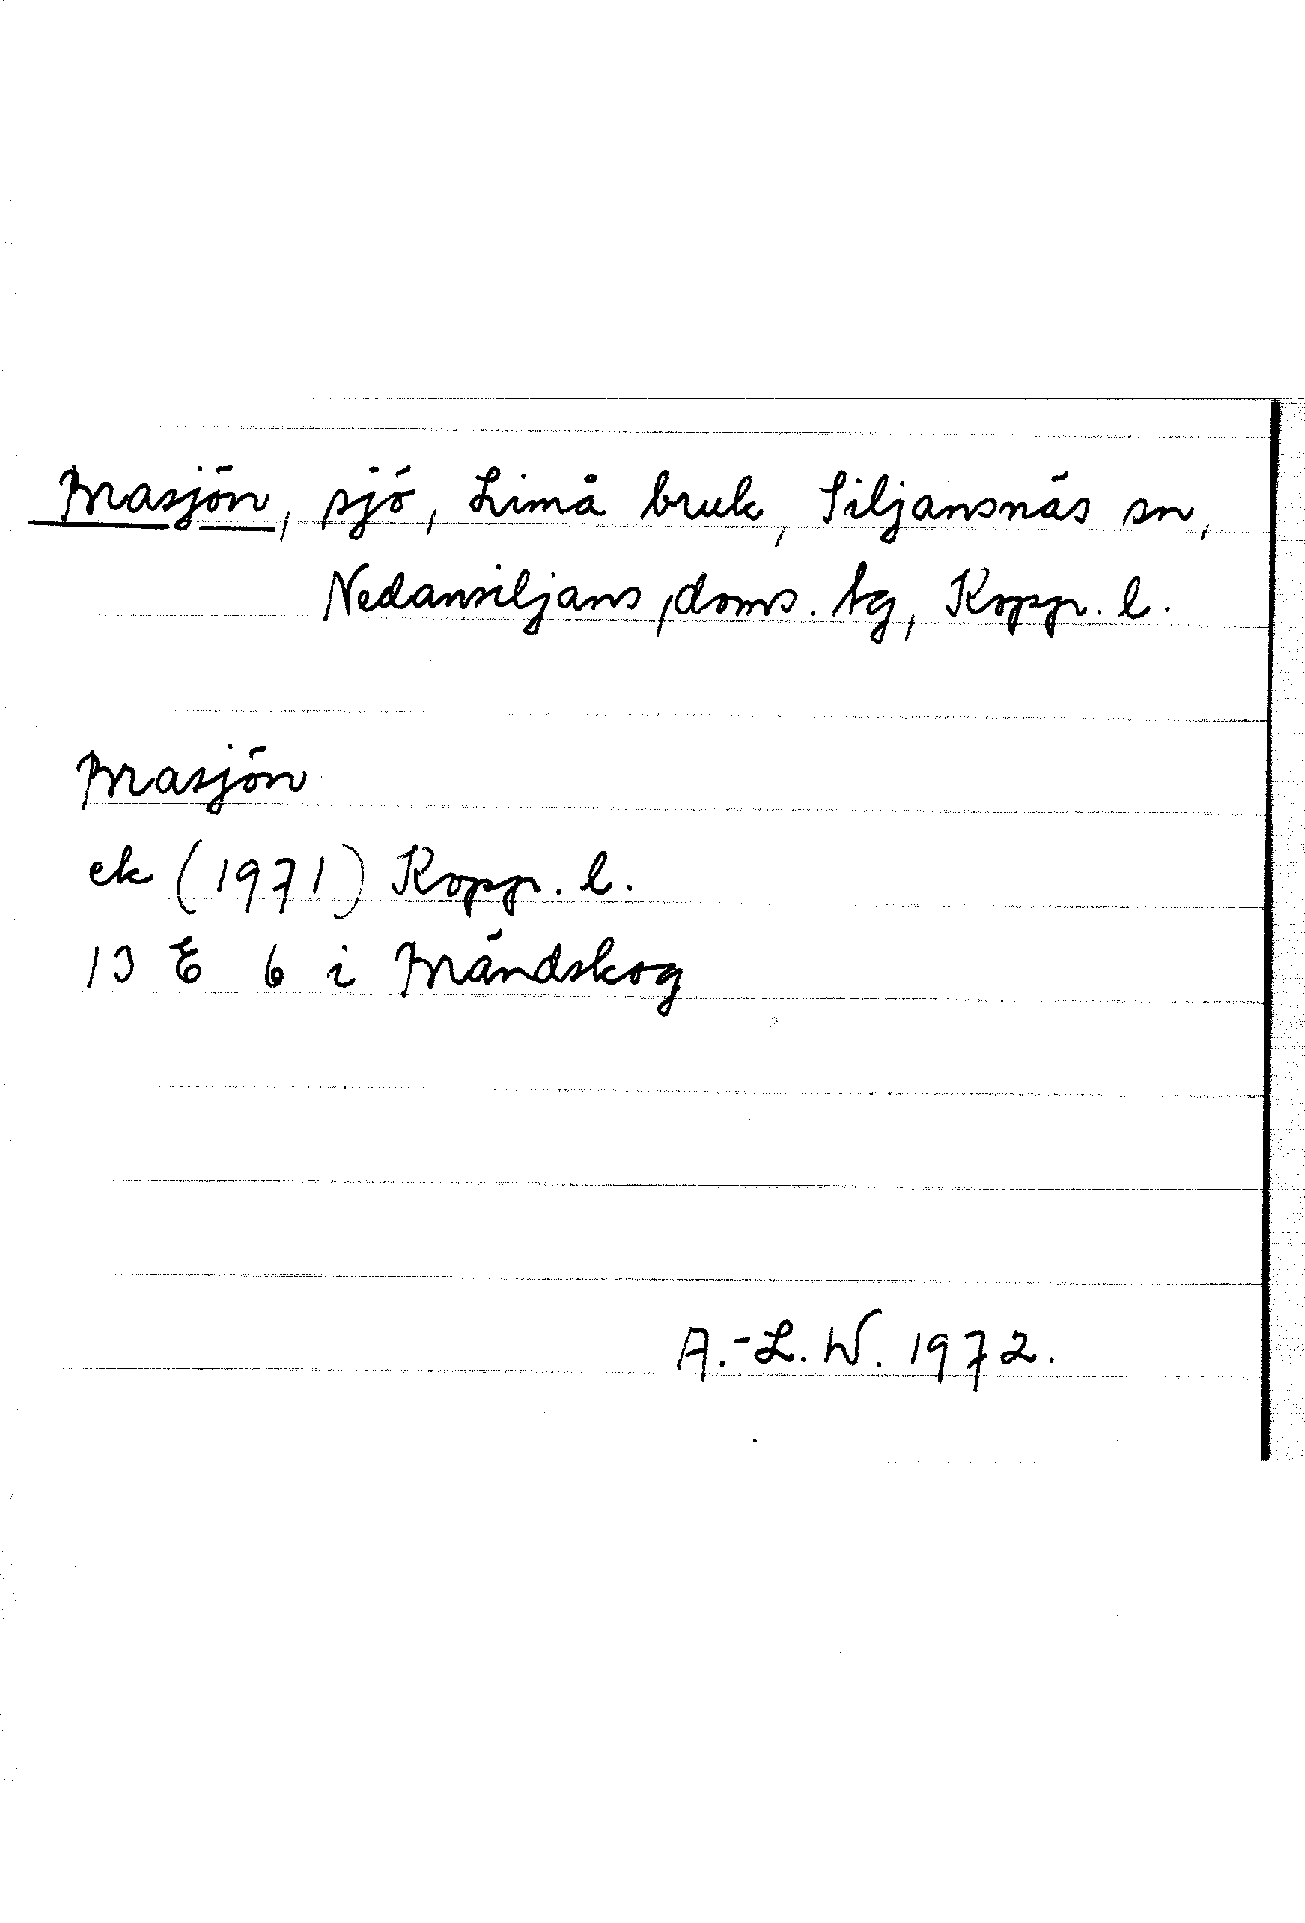 Masjön, sjö, Limå bruk, Siljansnäs sn,
Nedansiljans doms. tg, Kopp. l.
Masjön
ek (1971) Kopp. l.
13 E 6 i Mändskog
A.-L. W. 1972.